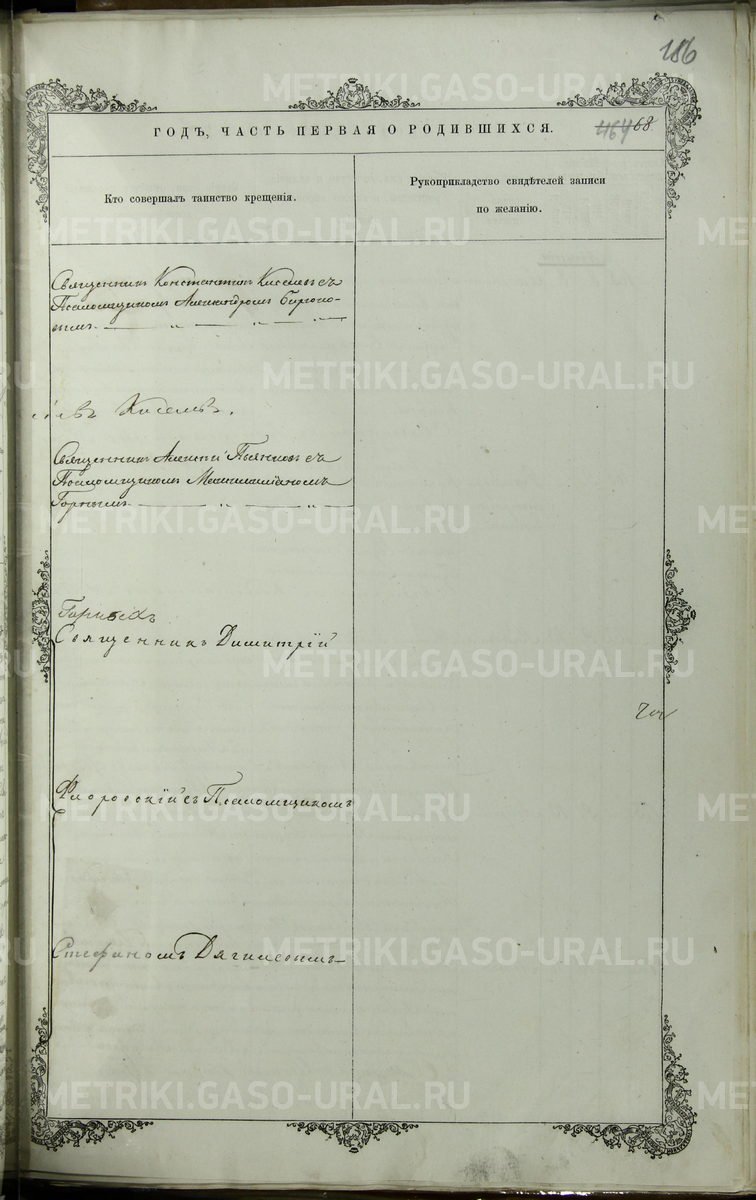 186
ГОДЪ, ЧАСТЬ ПЕРВАЯ О РОДИВШИХСЯ.
464 68
Кто совершалъ таинство крещенія.
Рукоприкладство свидѣтелей записи
по желанію.
Священникъ Константинъ Киселевъ съ
Псаломщикомъ Александромъ
Киселевъ.
Священникъ Алексѣй Пьянковъ съ
Псаломщикомъ Максимиліаномъ
Горнымъ
Священникъ Димитрій
Флоровскій съ Псаломщикомъ
Стефаномъ Дягилевымъ
METRIKI.GASO-URAL.RU